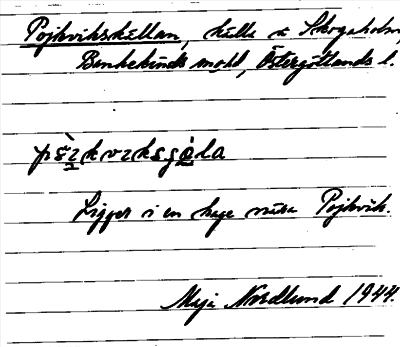 Pojkvikskällan, källa å Skogaholm,
Bankekinds sn, Östergötlands l.
Ligger i en hage nära Pojkvik.
Maja Nordlund 1944.